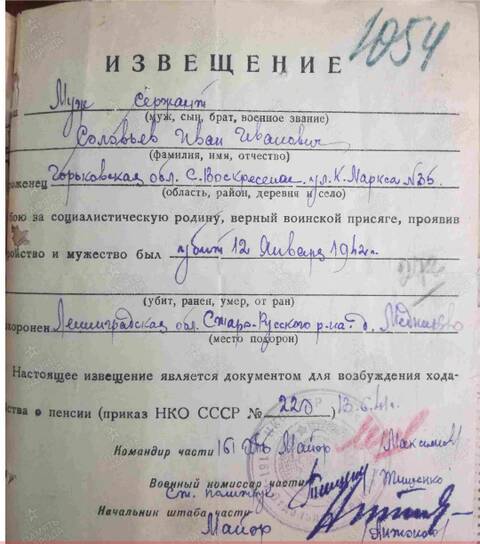 1054
ИЗВЕЩЕНИЕ
Муж сержант
(муж, сын, брат, военное звание)
Соловьев Иван Иванович
(фамилия, имя, отчество)
роженец Горьковская обл. С. Воскресенское ул. К. Маркса №35
(область, район, деревня и село)
бою за социалистическую родину, верный воинской присяге, проявив
ройство и мужество был убит 12 Января 1942 г.
(убит, ранен, умер, от ран)
хоронен Ленинградская обл. Старо-Русского р-на д.
(место подорон)
Настоящее извещение является документом для возбуждения хода-
ства о пенсии (приказ НКО СССР № 220 13.6.41г.
Командир части 161 Майор /Максимов/
Военный комиссар части /Тищенко/
Ст. политрук
Начальник штаба части
Майор